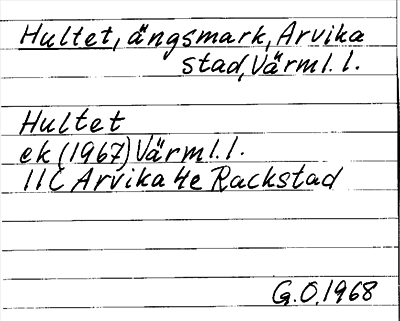 Hultet, ängsmark, Arvika
stad, Värml. l.
Hultet
ek (1967) Värml. l.
11C Arvika 4e Rackstad
G.O. 1968